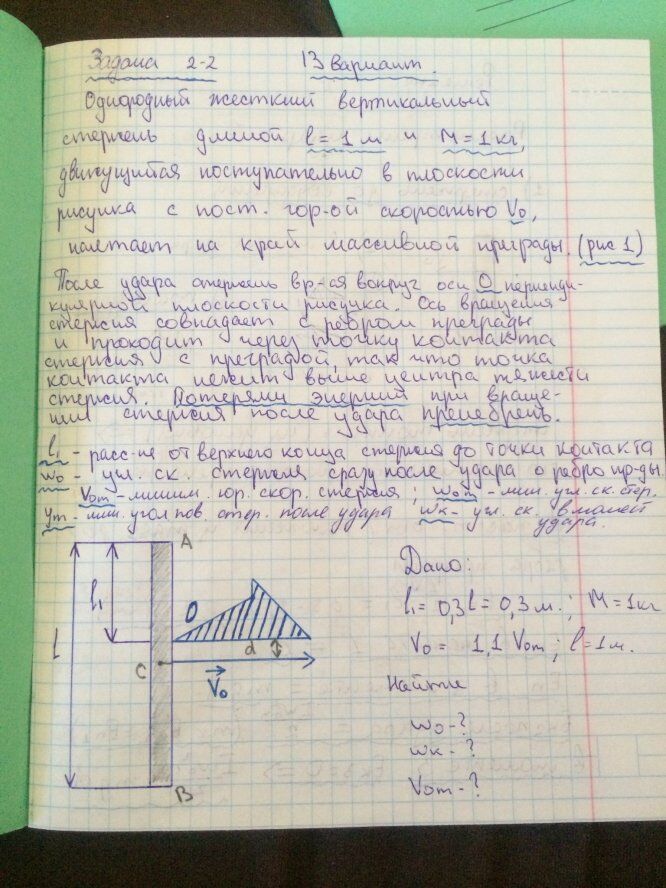 Задача 2-2 13 вариант.
Однородный жесткий вертикальный
стержень длиной l = 1 м и M = 1 кг,
движущийся поступательно в плоскости
рисунка с пост. гор-ой скоростью V₀,
налетает на край массивной преграды. (рис 1)
После удара стержень вр-ся вокруг оси O перпенди-
кулярной плоскости рисунка. Ось вращения
стержня совпадает с ребром преграды
и проходит через точку контакта
стержня с преградой, так что точка
контакта лежит выше центра тяжести
стержня. Потерями энергии при враще-
нии стержня после удара пренебречь.
l₁ - расс-ие от верхнего конца стержня до точки контакта
w₀ - угл. ск. стержня сразу после удара о ребро пр-ды
V₀m - миним. гор. скор. стержня ; w₀m - мин. угл. ск. стер.
φm - мин. угол пов. стер. после удара wк - угл. ск. в момент
удара.
A
l
l₁
O
d
C
V₀
B
Дано:
l₁ = 0,3 l = 0,3 м. ; M = 1 кг
V₀ = 1,1 V₀m ; l = 1 м.
Найти
w₀ - ?
wк - ?
V₀m - ?